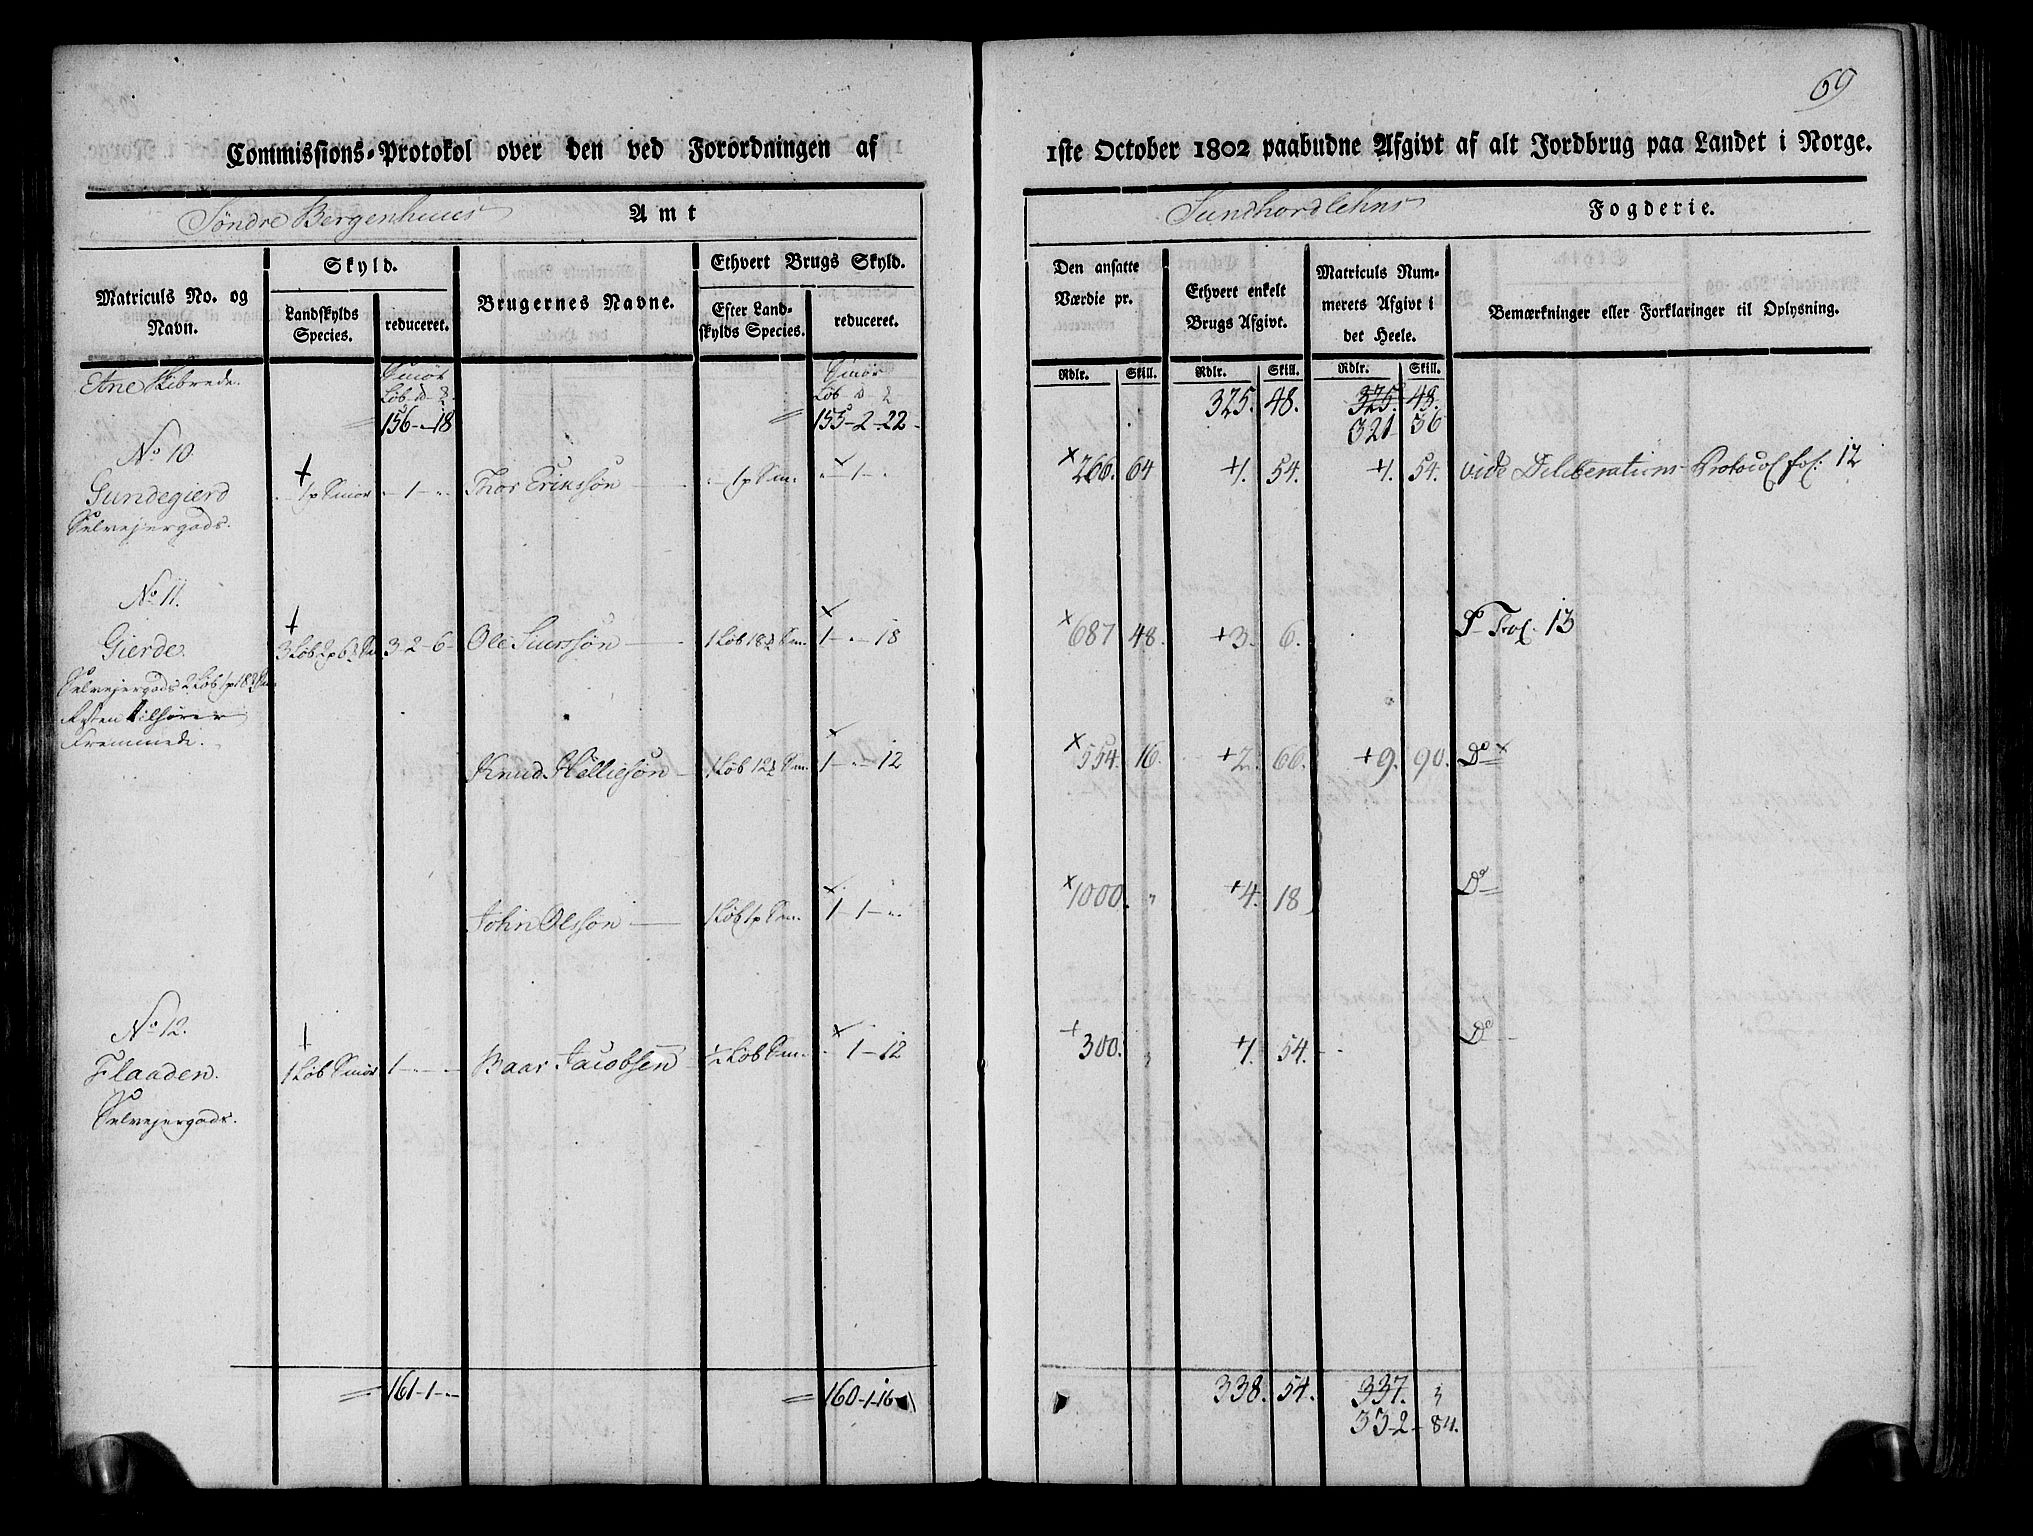 69
Commissions-Protokol over den ved Forordningen af 1ste October 1802 paabudne Afgivt af alt Jordbrug paa Landet i Norge.
Söndre Bergenhuus Amt
Sundhordlehns Fogderie.
Matriculs No. og Navn.
Skyld.
Landskylds Species.
reduceret.
Brugernes Navne.
Ethvert Brugs Skyld.
Efter Landskylds Species.
reduceret.
Den ansatte Værdie pr.
Ethvert enkelt Brugs Afgivt.
Matriculs Nummerets Afgivt i det Heele.
Bemærkninger eller Forklaringer til Oplysning.
Rdlr. Skill. Rdlr. Skill. Rdlr. Skill.
Etne Skibrede. Smör Smör
Löb Löb
156 - „ - 18 155 - 2 - 22 - 325. 48. 325. 48.
321 - 36
No. 10.
Gundegierd 1 p Smör „ - 1 - „ Thor Erikssön 1 p Sm. „ - 1 - „ × 266. 64 + 1. 54. + 1. 54. vide Deliberations Protocol fol: 12
Selvejergods.
No. 11.
Gierde. 3 Löb 2 p 6 3 - 2 - 6 - Ole Siurssön 1 Löb 18 Sm. 1 - „ - 18 × 687 48. + 3. 6. Fol. 13
Selvejergods 2 Löb 1 p 18
Resten tilhörer
Fremmede.
Knud Helliesön 1 Löb 12 Sm. 1 - „ - 12 × 554. 16. + 2. 66. + 9. 90. Do ×
John Olssön 1 Löb 1 p Sm. 1 - 1 - „ × 1000. „ + 4. 18 Do
No. 12.
Flaaden. 1 Löb Smör 1 - „ - „ Baar Jacobsen ½ Löb Sm. „ - 1 - 12 + 300. „ + 1. 54. Do
Selvejergods.
161 - 1 - „ 160 - 1 - 16 338. 54. 337. 3
332 - 84.